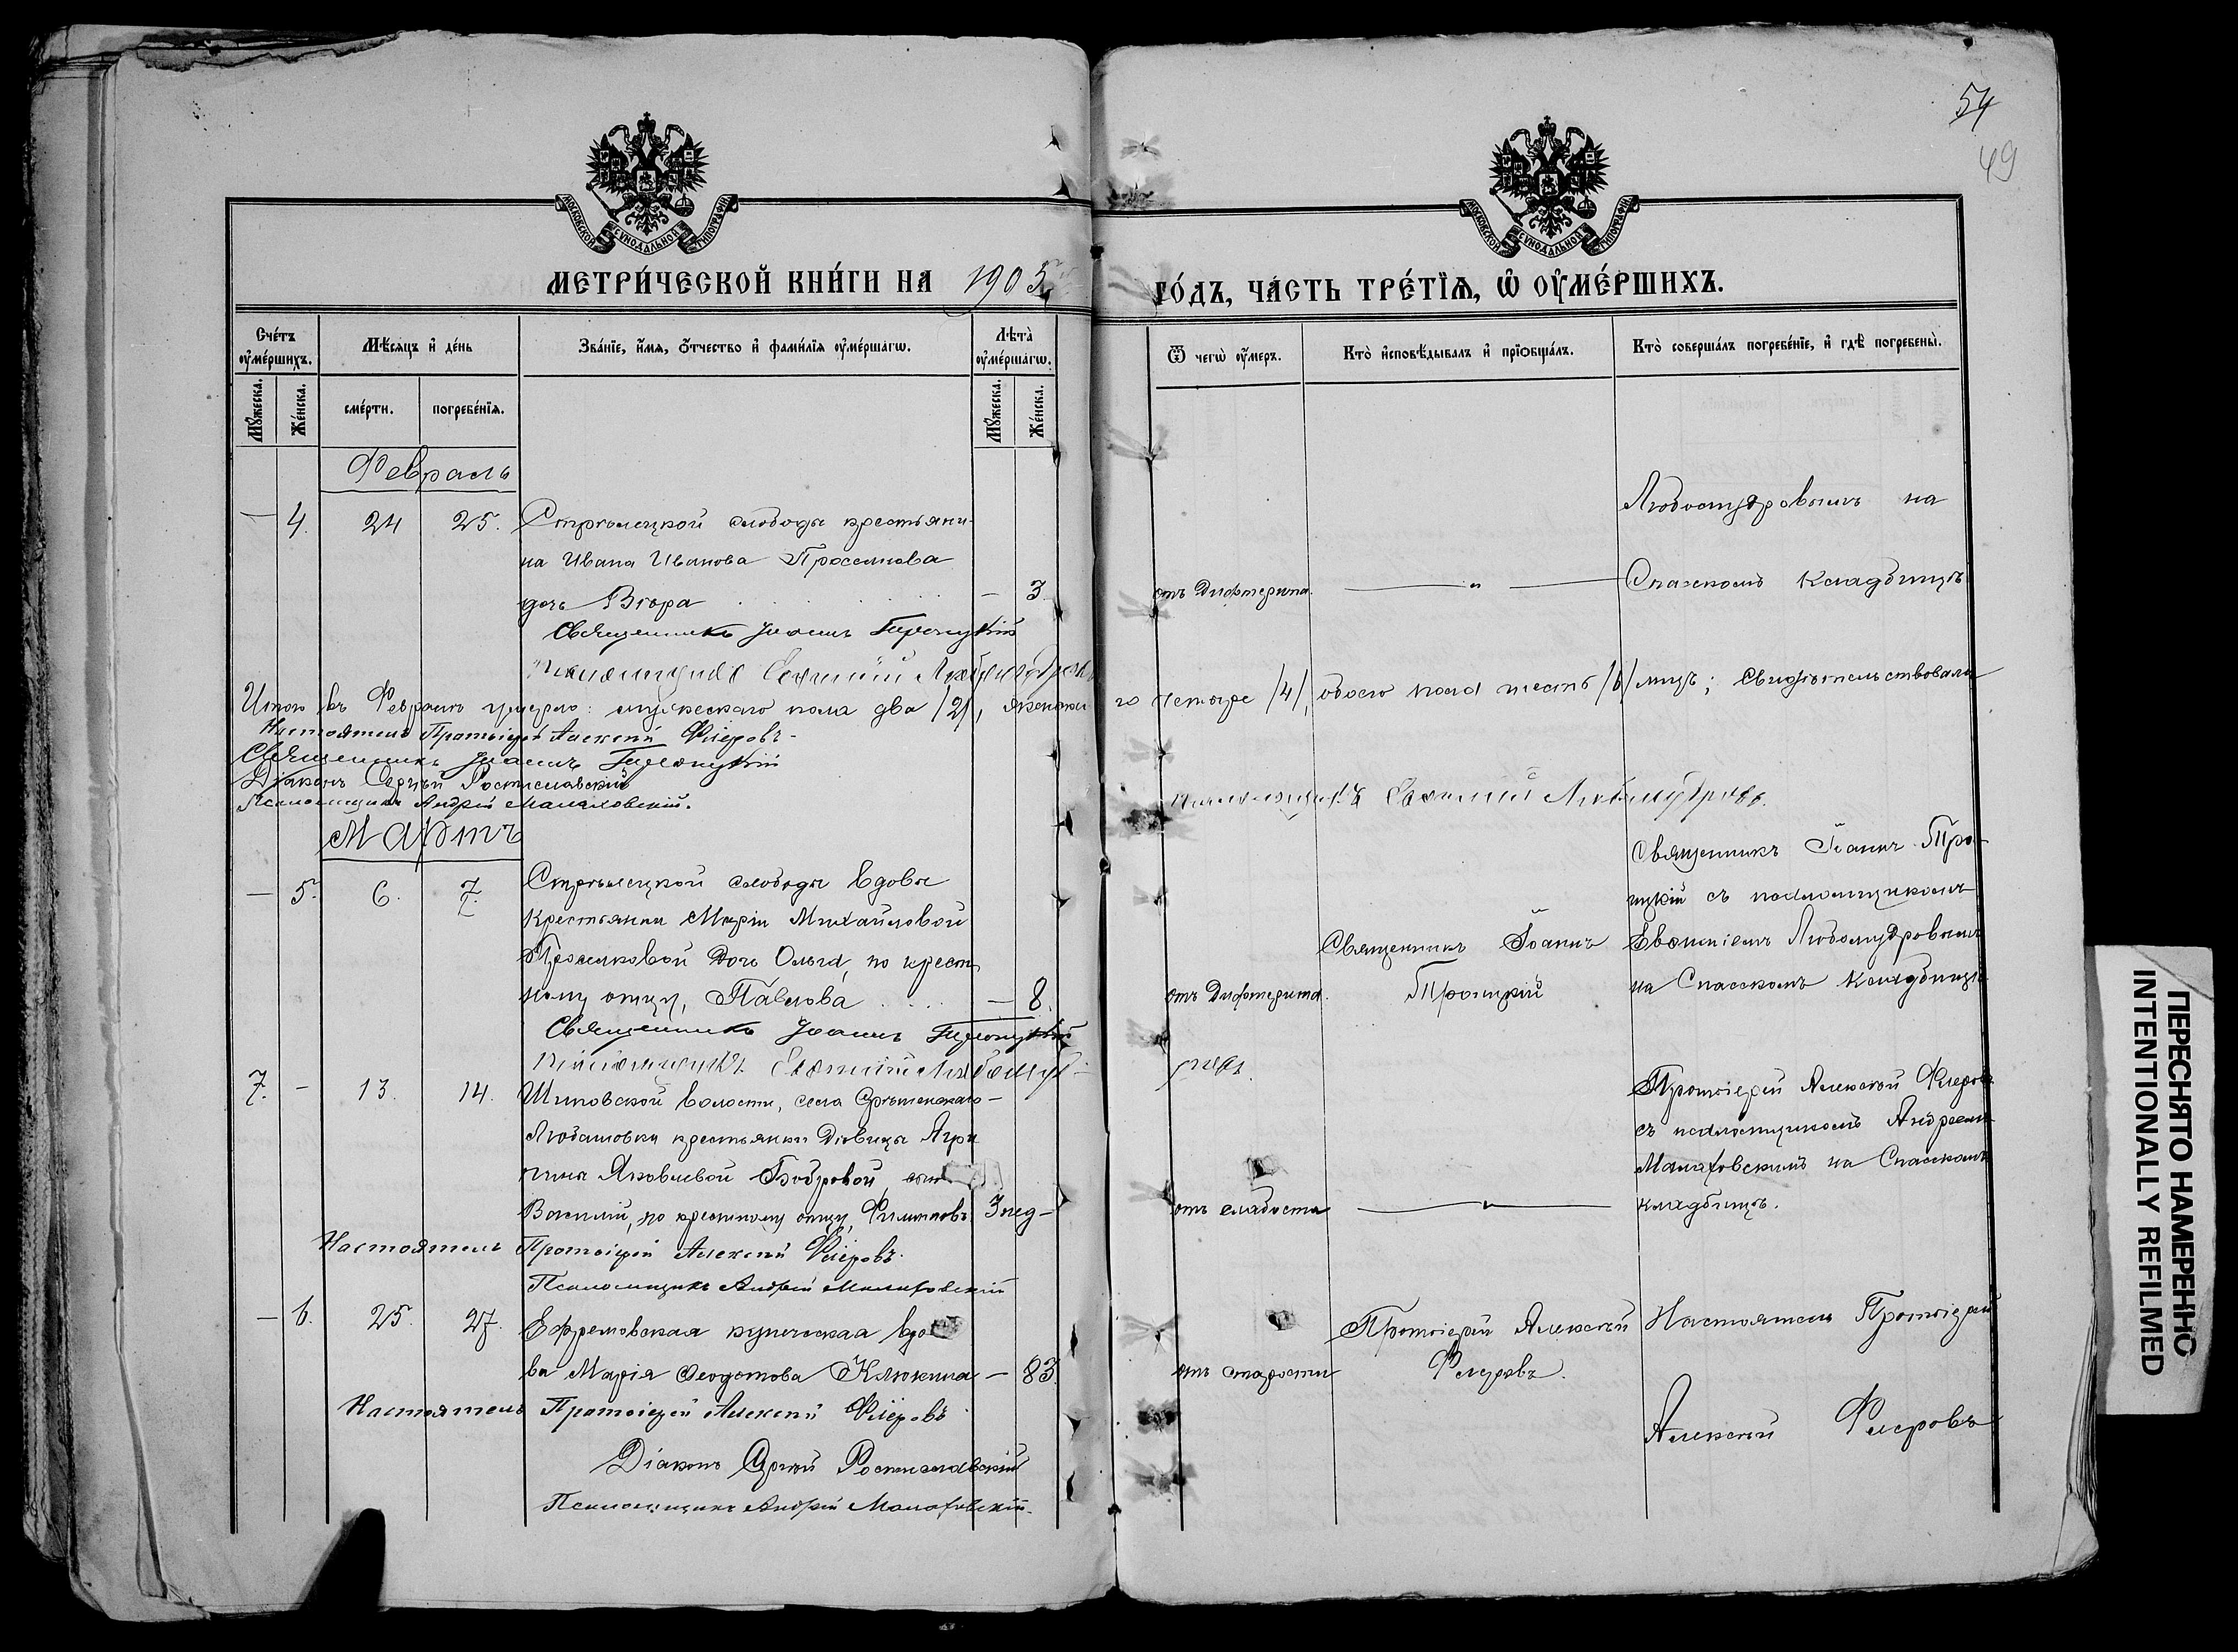 54
49
МОСКОВСКОЙ СУНОДАЛЬНОЙ ТИПОГРАФІИ
МОСКОВСКОЙ СУНОДАЛЬНОЙ ТИПОГРАФІИ
МЕТРИ́ЧЕСКОЙ КНИ́ГИ НА 1905
ГО́ДЪ, ЧА́СТЬ ТРЕ́ТЇѦ, Ѡ҆ ОУ҆МЕ́РШИХЪ.
Сче́тъ оу҆ме́ршихъ.
Мѣ́сѧцъ и҆ де́нь
Зва́нїе, и҆́мѧ, ѻ҆́тчество и҆ фами́лїѧ оу҆ме́ршагѡ.
Лѣ́та оу҆ме́ршагѡ.
Ѿ чегѡ̀ оу҆́меръ.
Кто̀ и҆сповѣ́дывалъ и҆ прїѻбща́лъ.
Кто̀ соверша́лъ погребе́нїе, и҆ гдѣ̀ погребены̀.
Мꙋ́жеска.
Же́нска.
сме́рти.
погребе́нїѧ.
Мꙋ́жеска.
Же́нска.
Февраль
— 4. 24 25. Стрѣлецкой слободы крестьяни-
на Ивана Иванова
дочь Вѣра — 3
отъ Дифтерита. — " —
Любомудровымъ на
Спасскомъ кладбищѣ
Священникъ Іоаннъ Троицкій
Псаломщикъ Евѳимій Любомудровъ
Итого въ Февралѣ умерло: мужескаго пола два /2/, женска-
го четыре /4/, обоего пола шесть /6/ лицъ; Свидѣтельствовали
Настоятель Протоіерей Алексѣй Флеровъ
Священникъ Іоаннъ Троицкій
Діаконъ Сергѣй Ростиславскій
Псаломщикъ Андрей Малаховскій.
Псаломщикъ Евѳимій Любомудровъ.
Мартъ
— 5. 6. 7. Стрѣлецкой слободы вдовы
крестьянки Маріи Михайловой
дочь Ольга, по крест-
ному отцу, Павлова — 8.
отъ Дифтерита.
Священникъ Іоаннъ
Троицкій
Священникъ Іоаннъ Тро-
ицкій съ псаломщикомъ
Евѳиміемъ Любомудровымъ
на Спасскомъ кладбищѣ
Священникъ Іоаннъ Троицкій
Псаломщикъ Евѳимій Любомуд-
ровъ.
7. — 13. 14. Шиловской волости, села Срѣтенскаго-
Любашовки крестьянки дѣвицы Агри-
пины Яковлевой Бобровой, сынъ
Василій, по крестному отцу, Филипповъ 3 нед —
отъ слабости — " —
Протоіерей Алексѣй Флеровъ
съ псаломщикомъ Андреемъ
Малаховскимъ на Спасскомъ
кладбищѣ.
Настоятель Протоіерей Алексѣй Флеровъ.
Псаломщикъ Андрей Малаховскій
— 6. 25. 27. Ефремовская купеческая вдо-
ва Марія Ѳеодотова Клюкина — 83.
отъ старости
Протоіерей Алексѣй
Флеровъ.
Настоятель Протоіерей
Алексѣй Флеровъ
Настоятель Протоіерей Алексѣй Флеровъ
Діаконъ Сергѣй Ростиславскій
Псаломщикъ Андрей Малаховскій.
ПЕРЕСНЯТО НАМЕРЕННО
INTENTIONALLY REFILMED